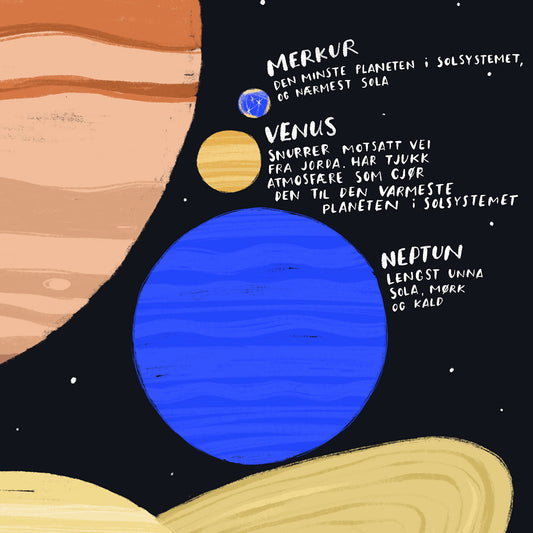 MERKUR
DEN MINSTE PLANETEN i SOLSYSTEMET,
OG NÆRMEST SOLA
VENUS
SNURRER MOTSATT VEI
FRA JORDA. HAR TJUKK
ATMOSFÆRE SOM GJØR
DEN TIL DEN VARMESTE
PLANETEN i SOLSYSTEMET
NEPTUN
LENGST UNNA
SOLA, MØRK
OG KALD